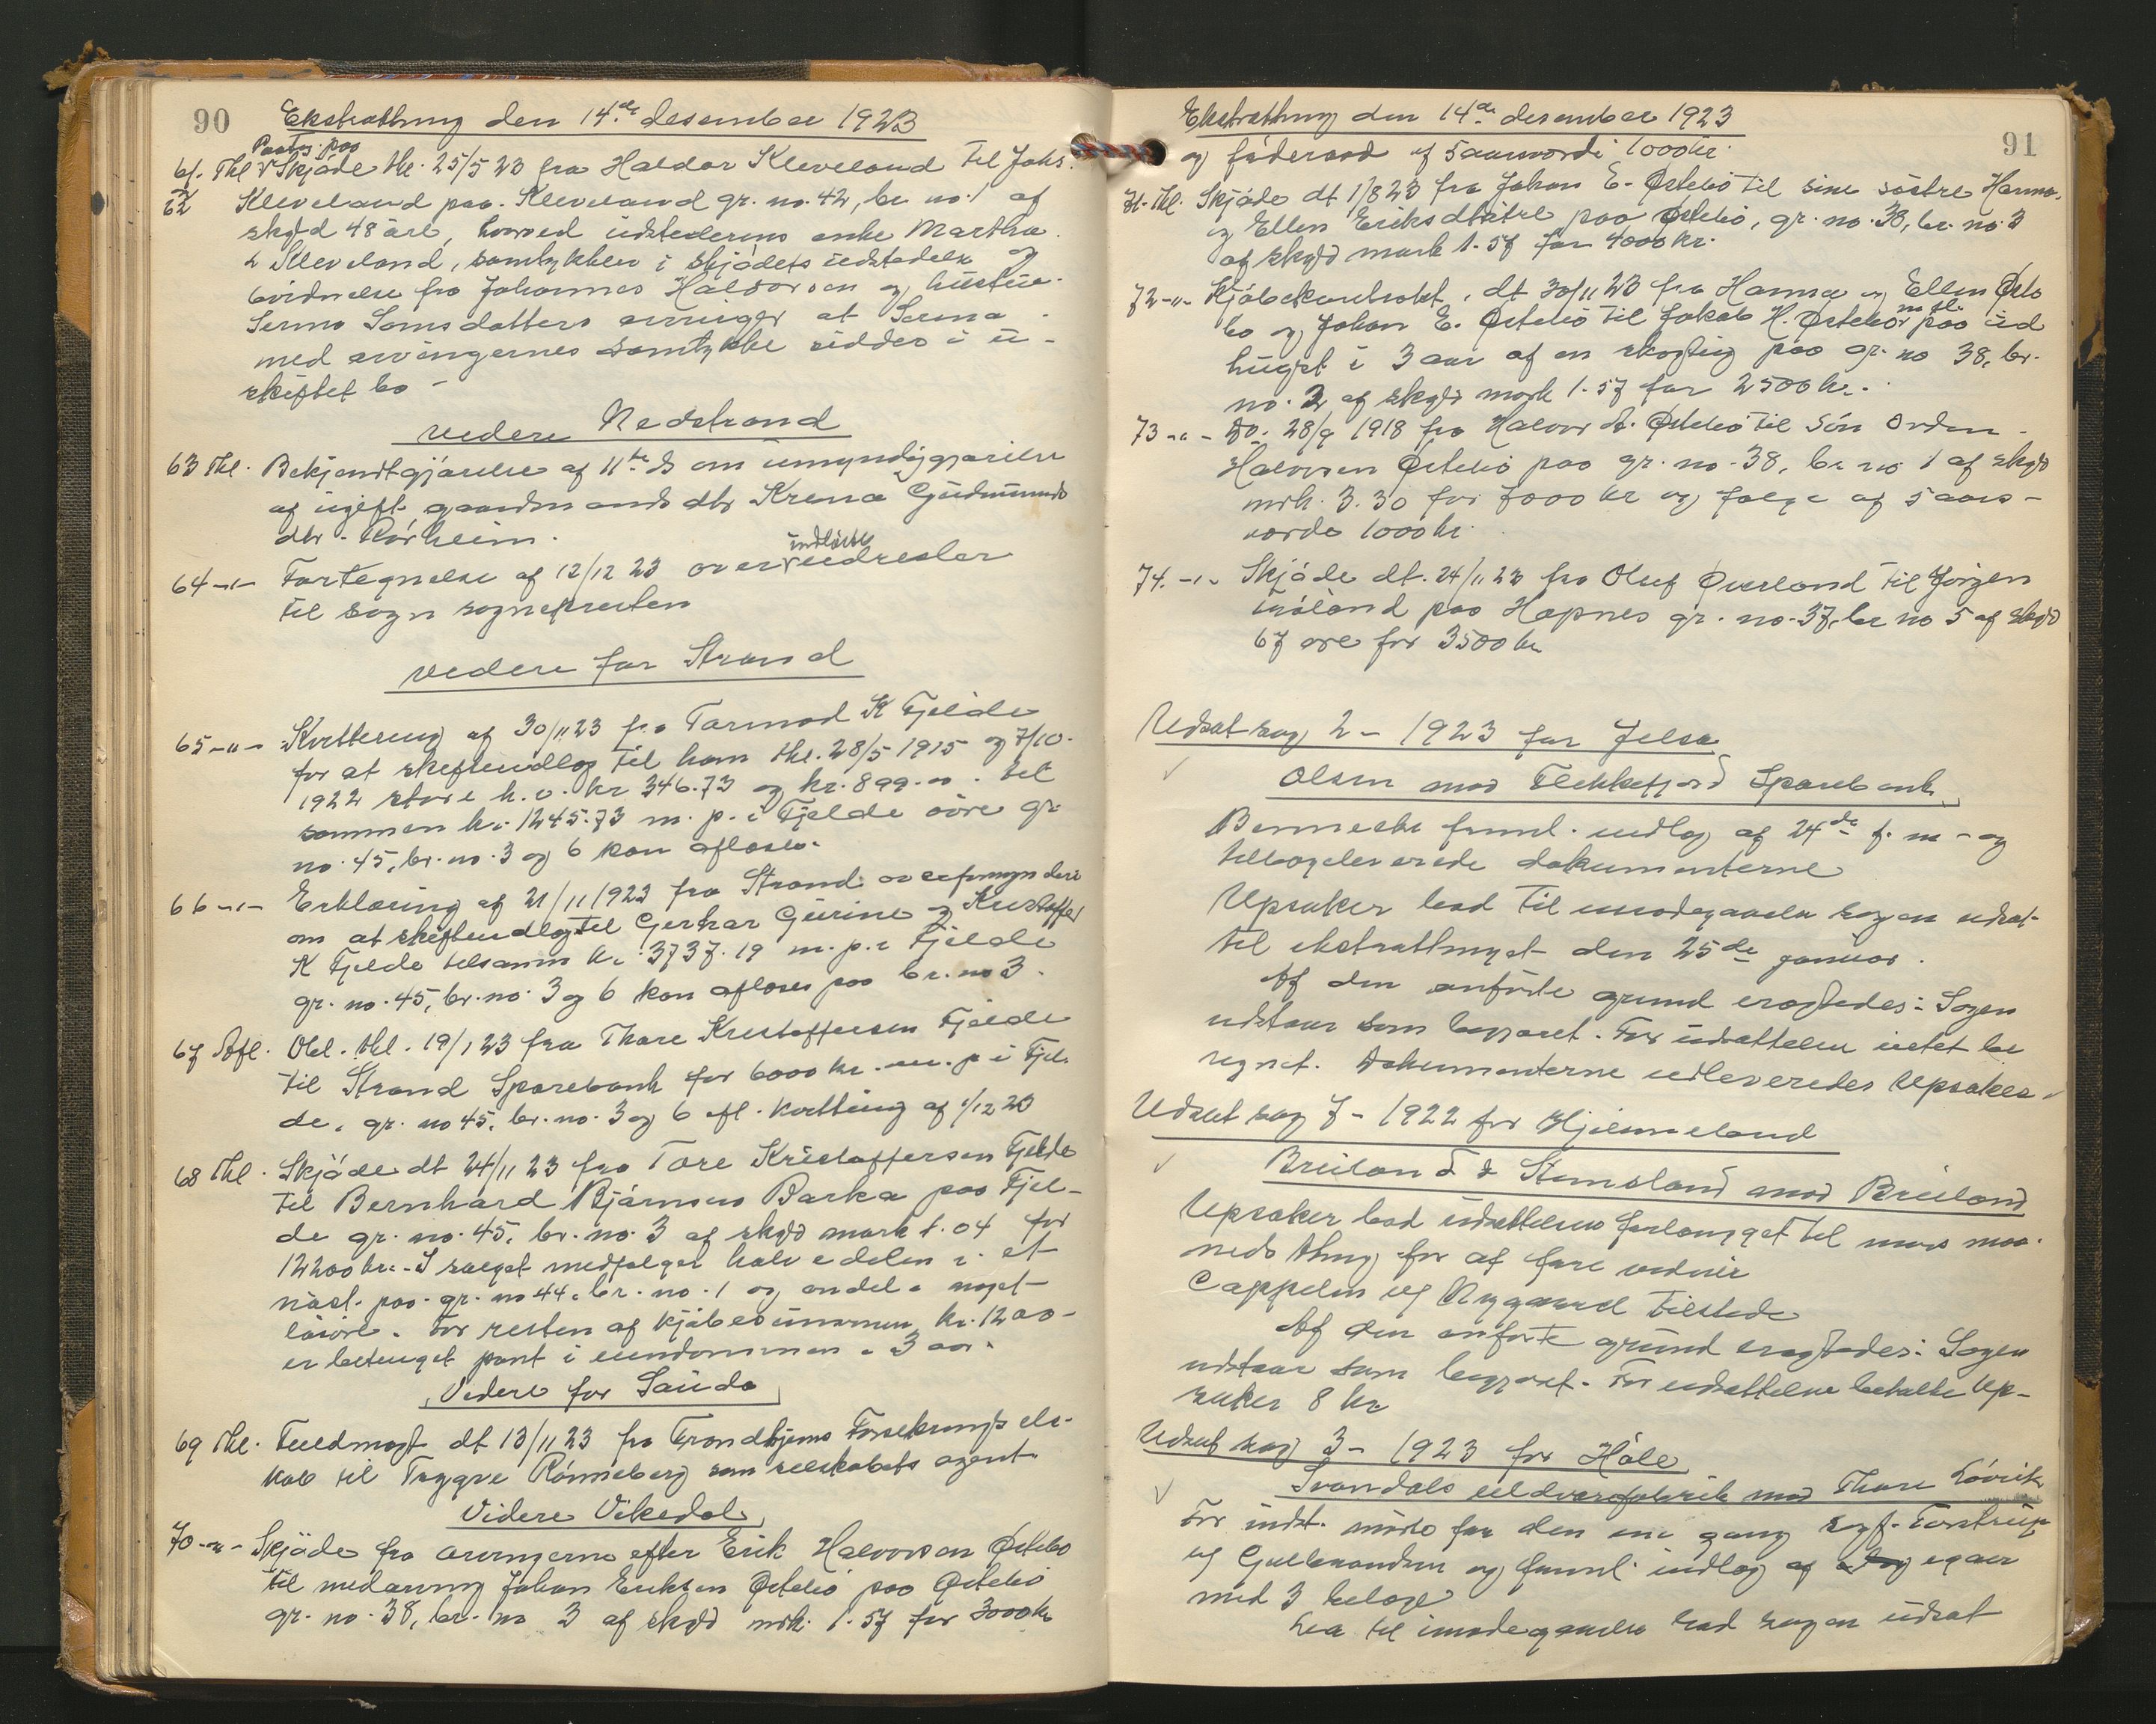 90
Ekstrathing den 14.de desember 1923
Paateg. paa
61. Thl. Skjøde thl. 25/5 23 fra Haldor Kleveland til Johs.
62 Kleveland paa Kleveland gr. no. 42, br. no. 1 af
skyld 48 øre, hvorved udstederens enke Martha
Kleveland, samtykker i skjødets udstedelse og
bevidnelse fra Johannes Haldorsen og hustru
Serina Samsdatters arvinger at Serina
med arvingernes samtykke sidder i u-
skiftet bo -
videre Nedstrand
63 Thl. Bekjendtgjørelse af 11te ds om umyndiggjørelse
af ugift gaardmands dtr Krena Gudmunds
dtr. Rørheim.
indløste
64 -"- Fortegnelse af 12/12 23 over vedresler
til sogn sognepresten
videre for Strand
65 -"- Kvittering af 30/11 23 fra Tormod K Fjelde
for at skifteudlæg til ham thl. 28/5 1915 og 7/10
1922 store h. v. kr 346.73 og kr. 899.00. til
sammen kr. 1245.73 m. p. i Fjelde øvre gr.
no. 45, br. no. 3 og 6 kan afløses.
66 -"- Erklæring af 21/11 1923 fra Strand overformynderi
om at skifteudlæg til Gerhar Gurine og Kristoffer
K Fjelde tilsamm kr. 3737.19 m. p. i Fjelde
gr. no. 45, br. no. 3 og 6 kan afløses paa br. no 3.
67 Afl. Obl. thl. 19/1 23 fra Thore Kristoffersen Fjelde
til Strand Sparebank for 6000 kr. m. p i Fjel-
de, gr. no 45, br. no. 3 og 6 efl. kvittering af 1/12 23
68 Thl. Skjøde dt 24/11 23 fra Tore Kristoffersen Fjelde
til Bernhard Bjørnsen Barka paa Fjel-
de gr. no. 45, br. no. 3 af skyld mark 1.04 for
12200 kr. - I salget medfølger halvedelen i et
nøst. paa gr. no 44, br. no. 1 og endel noget
løsøre. For resten af kjøbesummen, kr. 1200-
er betinget pant i eiendommen i 3 aar.
Videre for Sauda
69 Thl. Fuldmagt dt 13/11 23 fra Trondhjems Forsikringsels-
kab til Trygve Rønneberg som selskabets agent
Videre Vikedal
70 -"- Skjøde fra arvingerne efter Erik Halvorsen Østebø
til medarving Johan Eriksen Østebø paa Østebø
gr. no. 38, br. no 3 af skyld mrk. 1.57 for 3000 kr
91
Ekstrathing den 14de desember 1923
og føderaad af 5aarsværdi 1000 kr.
71. Thl. Skjøde dt 1/8 23 fra Johan E. Østebø til sine søstre Hanna
og Ellen Eriksdøtre paa Østebø, gr. no. 38, br. no. 3
af skyld mark 1.57 for 4000 kr.
72 -"- Kjøbekontrakt, dt 30/11 23 fra Hanna og Ellen Øste
bø og Johan E. Østebø til Jakob H. Østebø paa ud
hugst i 3 aar af en skogteig paa gr. no 38, br.
no. 3 af skyld mark 1.57 for 2500 kr.
73 -"- Do. 28/9 1918 fra Halvor A. Østebø til søn Arden
Halvorsen Østebø paa gr. no. 38, br. no 1 af skyld
mrk. 3.30 for 7000 kr og følge af 5 aars-
værdi 1000 kr.
74. -"- Skjøde dt. 24/11 23 fra Oluf Øverland til Jørgen
Frøland paa Hapnes gr. no. 37, br no 5 af skyld
67 øre for 3500 kr
Udsat sag 2 - 1923 for Jelsa
Olsen mod Flekkefjord Sparebank
Benneche freml. indlæg af 24de f. m - og
tilbageleverede dokumenterne
Upsaker bad til imødegaaelse sagen udsat
til ekstrathinget den 25de januar.
Af den anførte grund eragtedes: Sagen
udstaar som begjæret. For udsættelsen intet be
regnet. Dokumenterne udleveredes Upsaker
Udsat sag 7 - 1922 for Hjelmeland
Breiland & Stensland mod Breiland
Upsaker bad udsættelsen forlænget til mars maa-
neds thing for at føre vidner
Cappelen v/ Nygaard tilstede
Af den anførte grund eragtedes: Sagen
udstaar som begjæret. For udsættelsen betalte Up-
saker 8 kr
Udsat sag 3 - 1923 for Høle
Svandals uldvarefabrik mod Thore Løvik
For indst. møtte for den ene gang sagf. Tastrup
v/ Gulbrandsen og freml. indlæg af dags egaar
med 3 bilage
Lea til imødegaaelse bad sagen udsat